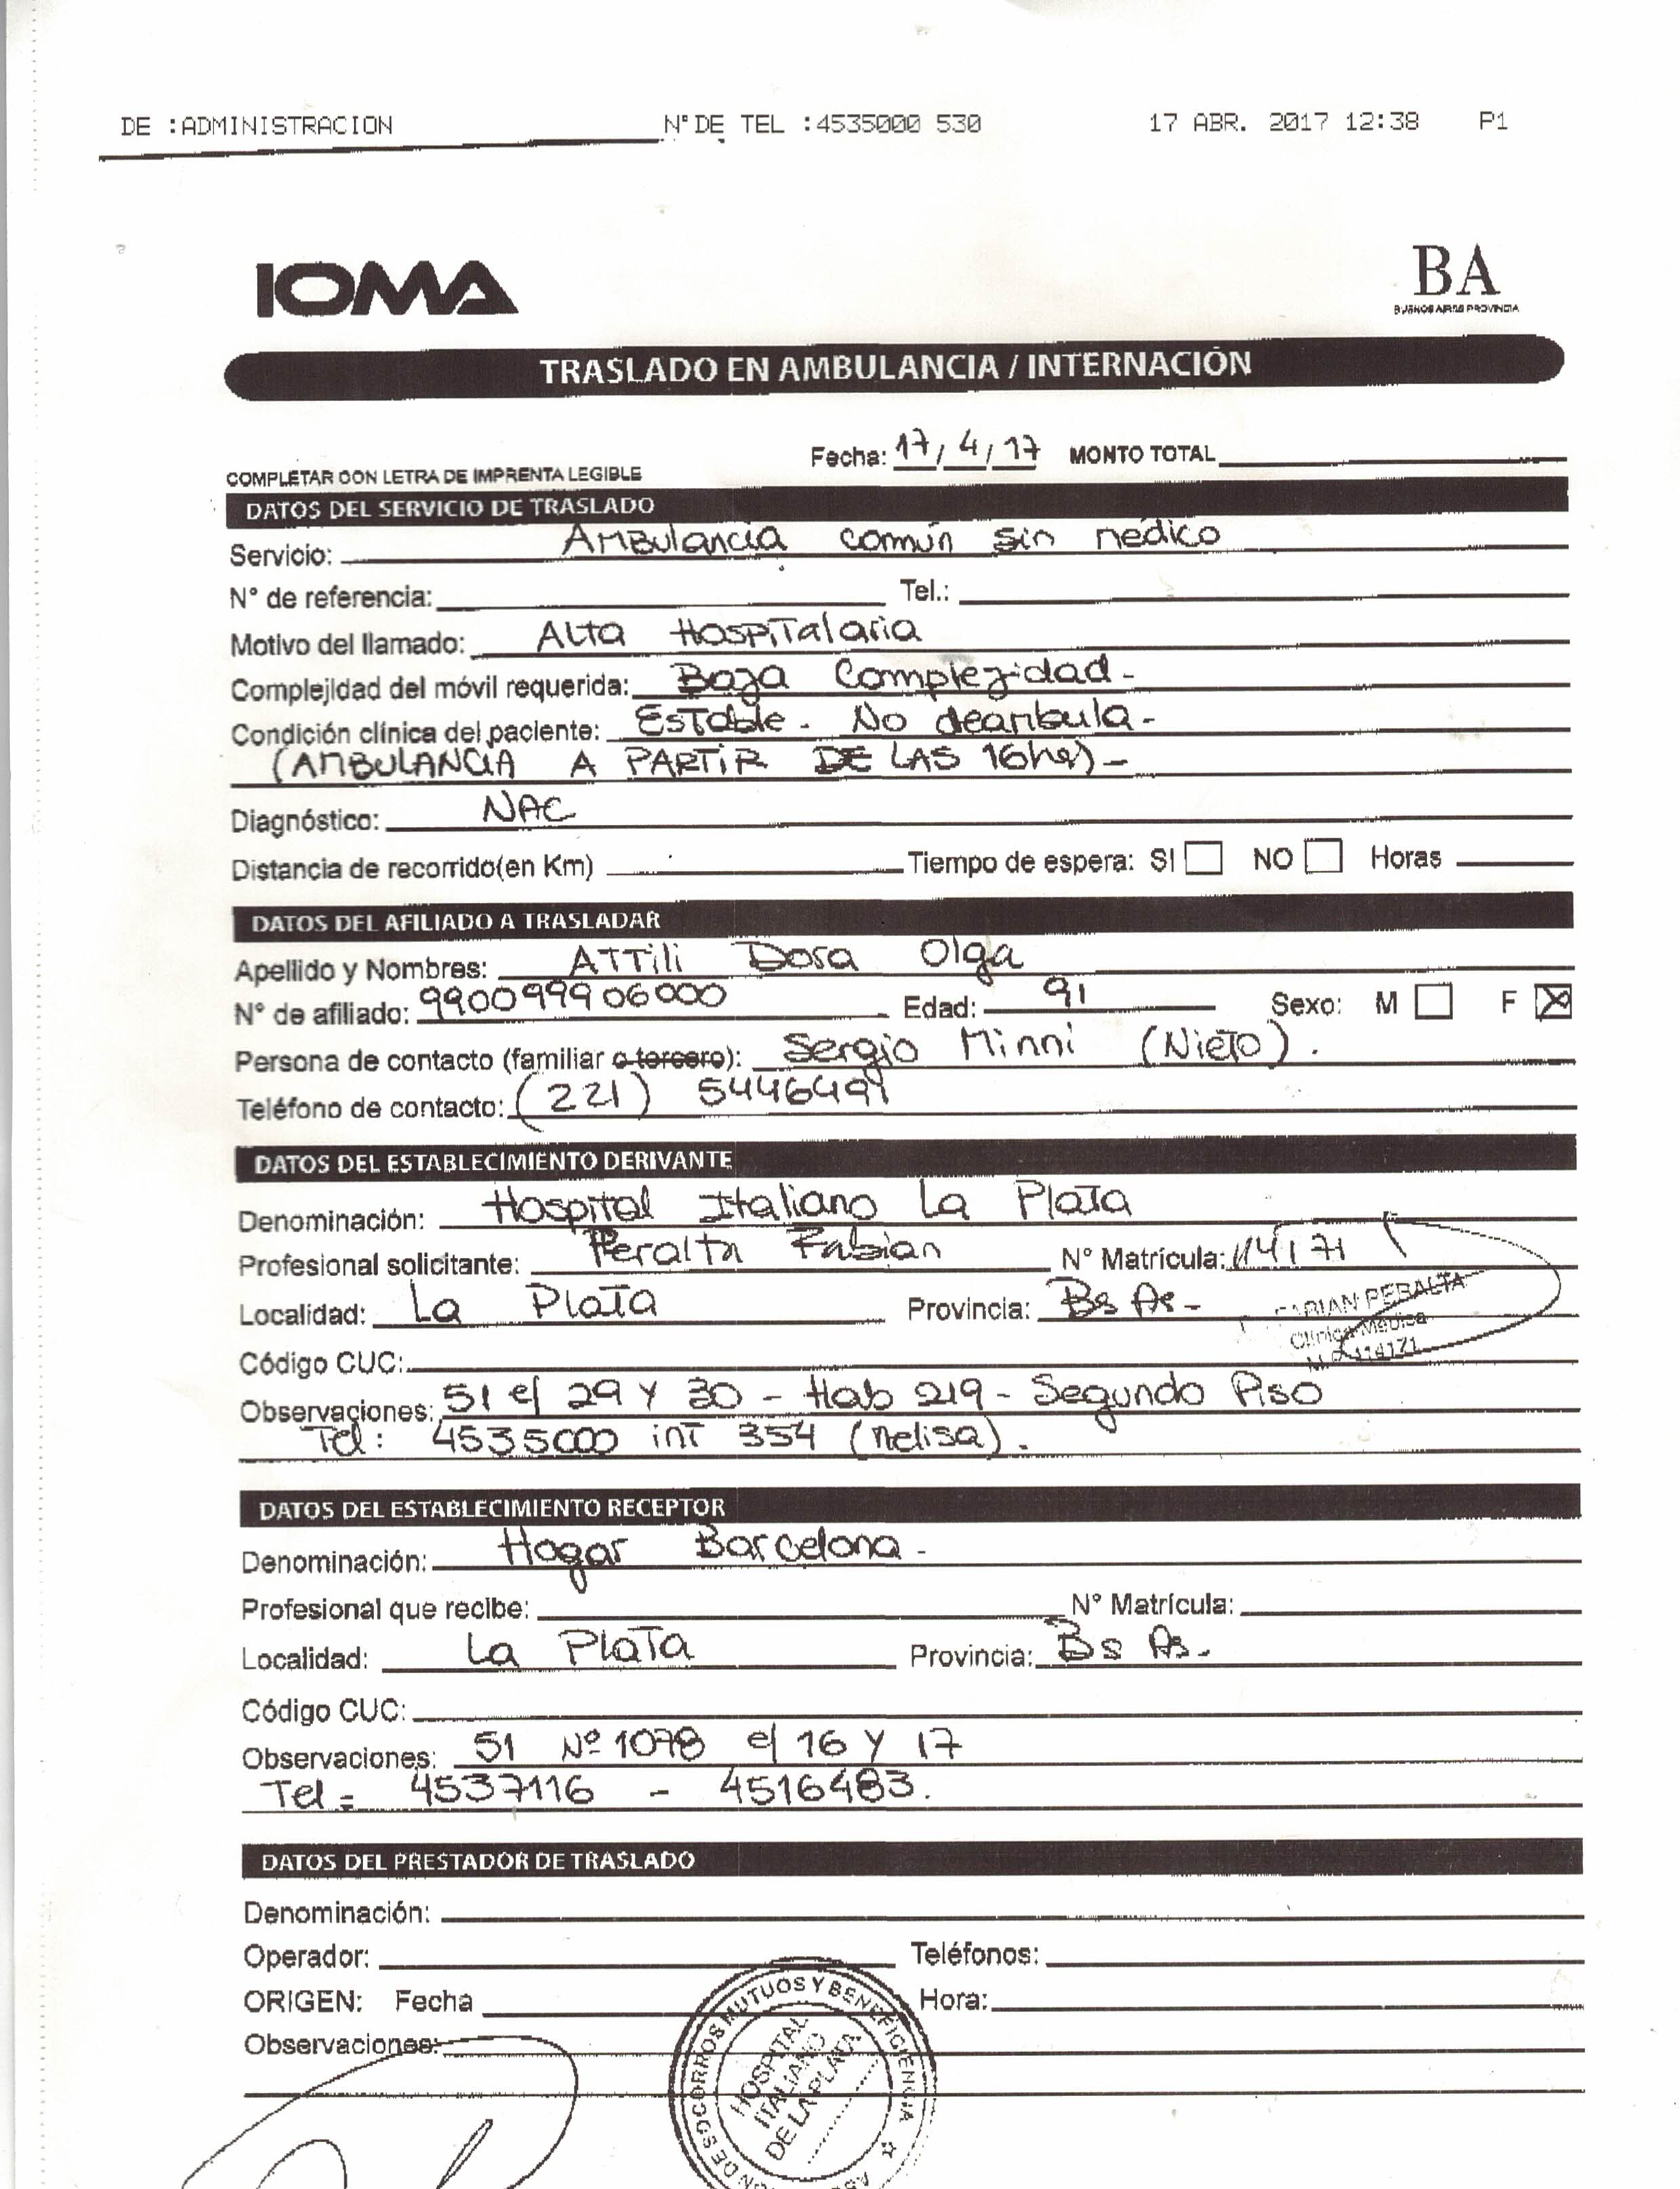 DE :ADMINISTRACION N° DE TEL :4535000 530 17 ABR. 2017 12:38 P1
IOMA
BA
BUENOS AIRES PROVINCIA
TRASLADO EN AMBULANCIA / INTERNACIÓN
Fecha: 17/4/17 MONTO TOTAL
COMPLETAR CON LETRA DE IMPRENTA LEGIBLE
DATOS DEL SERVICIO DE TRASLADO
Servicio: Ambulancia común sin médico
N° de referencia: Tel.:
Motivo del llamado: Alta Hospitalaria
Complejidad del móvil requerida: Baja Complejidad-
Condición clínica del paciente: Estable. No deambula-
(AMBULANCIA A PARTIR DE LAS 16hs)-
Diagnóstico: NAC
Distancia de recorrido(en Km) Tiempo de espera: SI NO Horas
DATOS DEL AFILIADO A TRASLADAR
Apellido y Nombres: Attili Dora Olga
N° de afiliado: 990099906000 Edad: 91 Sexo: M F X
Persona de contacto (familiar o tercero): Sergio Minni (Nieto).
Teléfono de contacto: (221) 5446491
DATOS DEL ESTABLECIMIENTO DERIVANTE
Denominación: Hospital Italiano La Plata
Profesional solicitante: Peralta Fabian N° Matrícula: 114171
Localidad: La Plata Provincia: Bs As-
FABIAN PERALTA
Clínica Médica
114171
Código CUC:
Observaciones: 51 e/ 29 y 30 - Hab 219 - Segundo Piso
Tel: 4535000 int 354 (Melisa).
DATOS DEL ESTABLECIMIENTO RECEPTOR
Denominación: Hogar Barcelona-
Profesional que recibe: N° Matrícula:
Localidad: La Plata Provincia: Bs As.
Código CUC:
Observaciones: 51 Nº 1078 e/ 16 y 17
Tel= 4537116 - 4516483.
DATOS DEL PRESTADOR DE TRASLADO
Denominación:
Operador: Teléfonos:
ORIGEN: Fecha Hora:
Observaciones:
DE SOCORROS MUTUOS Y BENEFICIENCIA
HOSPITAL
ITALIANO
DE LA PLATA